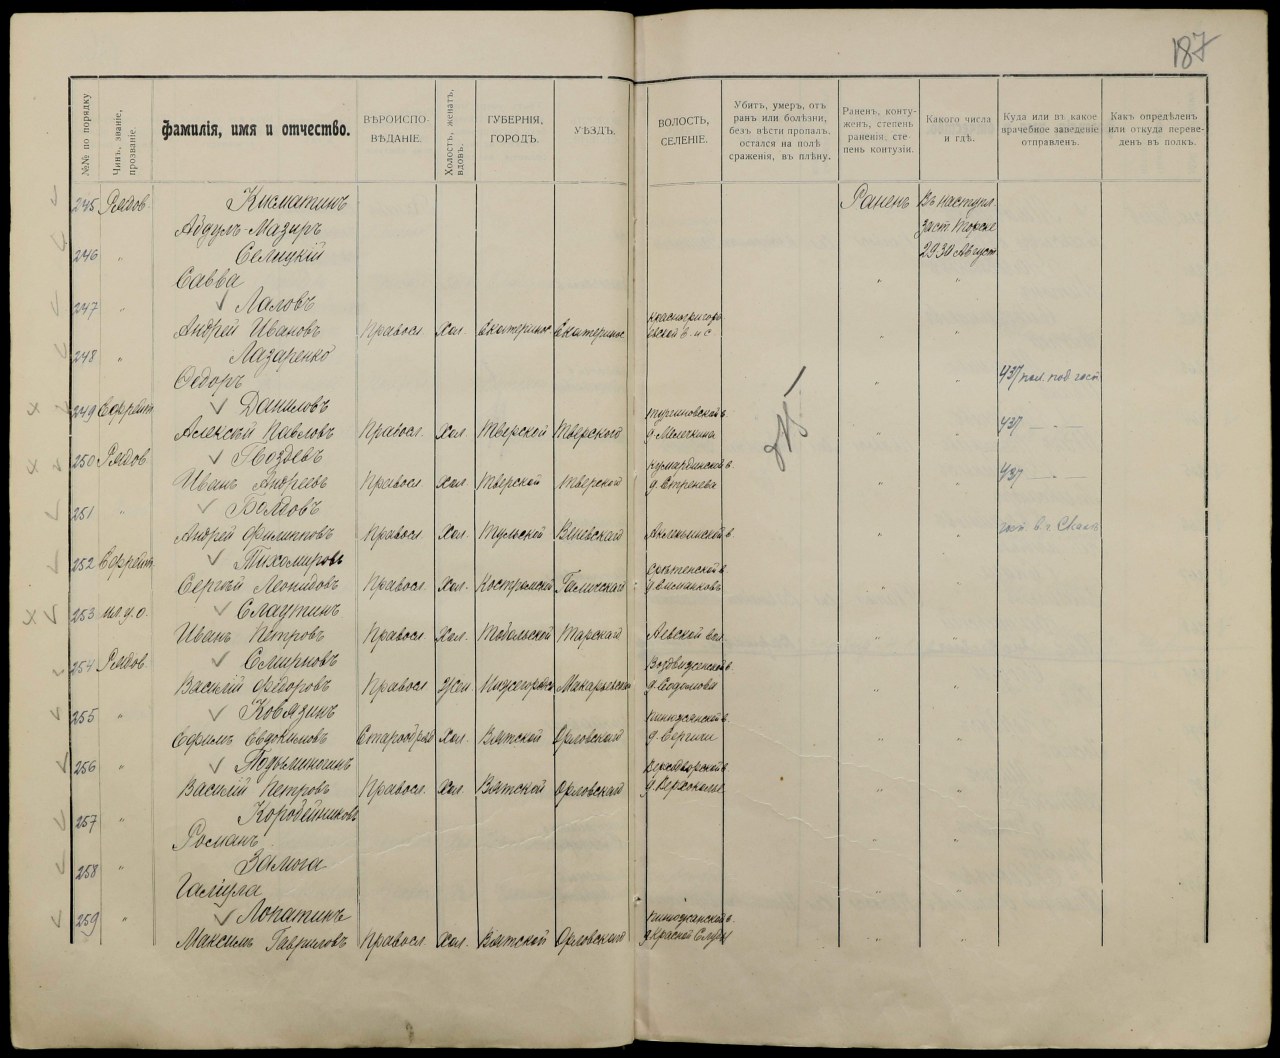 187
№№ по порядку
Чинъ, званіе, прозваніе.
Фамилія, имя и отчество.
ВѢРОИСПО-
ВѢДАНІЕ.
Холостъ, женатъ, вдовъ.
ГУБЕРНІЯ,
ГОРОДЪ.
УѢЗДЪ.
ВОЛОСТЬ,
СЕЛЕНІЕ.
Убитъ, умеръ, отъ
ранъ или болѣзни,
безъ вѣсти пропалъ.
остался на полѣ
сраженія, въ плѣну.
Раненъ, конту-
женъ, степень
раненія, сте-
пень контузіи.
Какого числа
и гдѣ.
Куда или въ какое
врачебное заведеніе
отправленъ.
Какъ опредѣленъ
или откуда переве-
денъ въ полкъ.
245 Рядов. Кисматинъ Раненъ Въ наступл.
Абдулъ-Мазиръ
246 " Селицкій 29 30 Август
Савва " "
247 " Лаловъ
Андрей Ивановъ Правосл. Хол. Екатеринос. Екатеринос. "
248 " Лазаренко
Ѳедоръ " " 437 пол. под. госп.
249 Ефрейт. Даниловъ
Алексѣй Павловъ Правосл. Хол. Тверской Тверского " " 437 — " —
250 Рядов. Гвоздевъ
Иванъ Андреевъ Правосл. Хол. Тверской Тверской д. Стренева " " 437 — " —
251 " Болдовъ
Андрей Филипповъ Правосл. Хол. Тульской Веневскаго " "
252 Ефрейт. Тихомировъ
Сергѣй Леонидовъ Правосл. Хол. Костромской Галичскаго " "
253 мл. у. о. Слаутинъ
Иванъ Петровъ Правосл. Хол. Тобольской Тарскаго Аевской вол. " "
254 Рядов. Смирновъ Воздвиженской в.
Василій Ѳедоровъ Правосл. Жен. Нижегородск. Макарьевскаго " "
255 " Ковязинъ
Ефимъ Евдокимовъ Старообряд. Хол. Вятской Орловскаго д. Сергичи " "
256 "
Василій Петровъ Правосл. Хол. Вятской Орловскаго " "
257 " Коробейниковъ
Романъ " "
258 " Замога
" "
259 " Лопатинъ
Максимъ Гавриловъ Правосл. Хол. Вятской Орловскаго " "